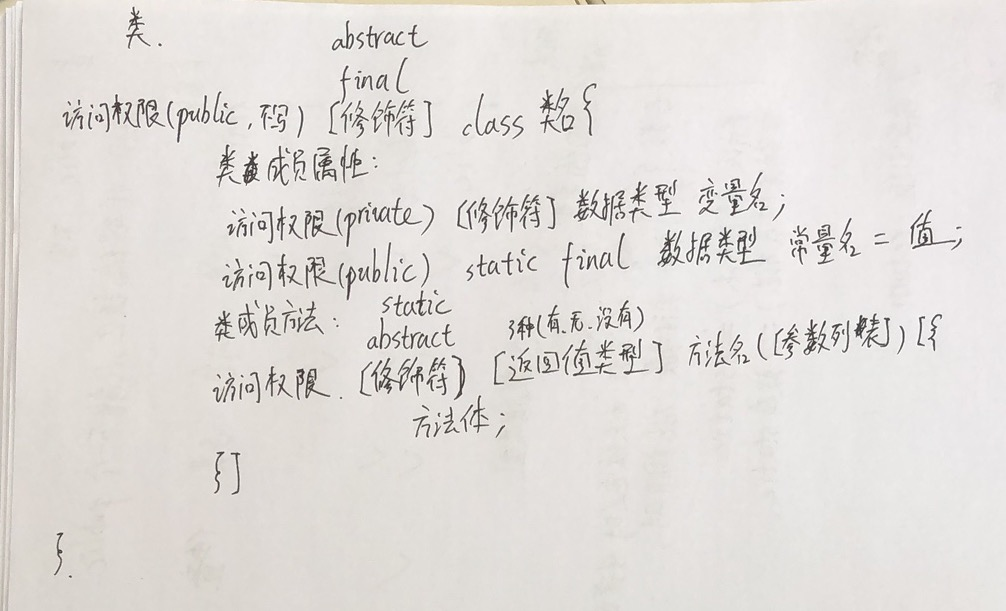 类.
abstract
final
访问权限(public,不写) [修饰符] class 类名{
类成员属性:
访问权限(private) [修饰符] 数据类型 变量名;
访问权限(public) static final 数据类型 常量名 = 值;
static
类成员方法: abstract 3种(有、无、没有)
访问权限. [修饰符] [返回值类型] 方法名([参数列表]) [{
方法体;
}]
}.